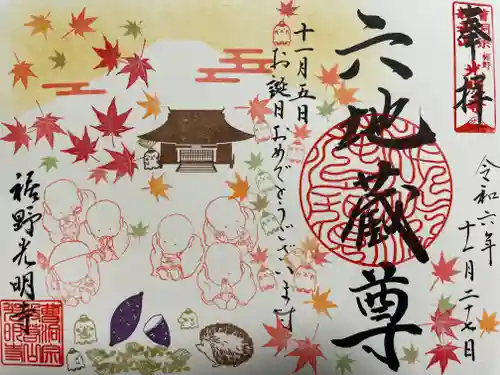 奉拝
六地蔵尊
令和六年
十一月二十七日
十一月五日
お誕生日おめでとうございます
裾野光明寺